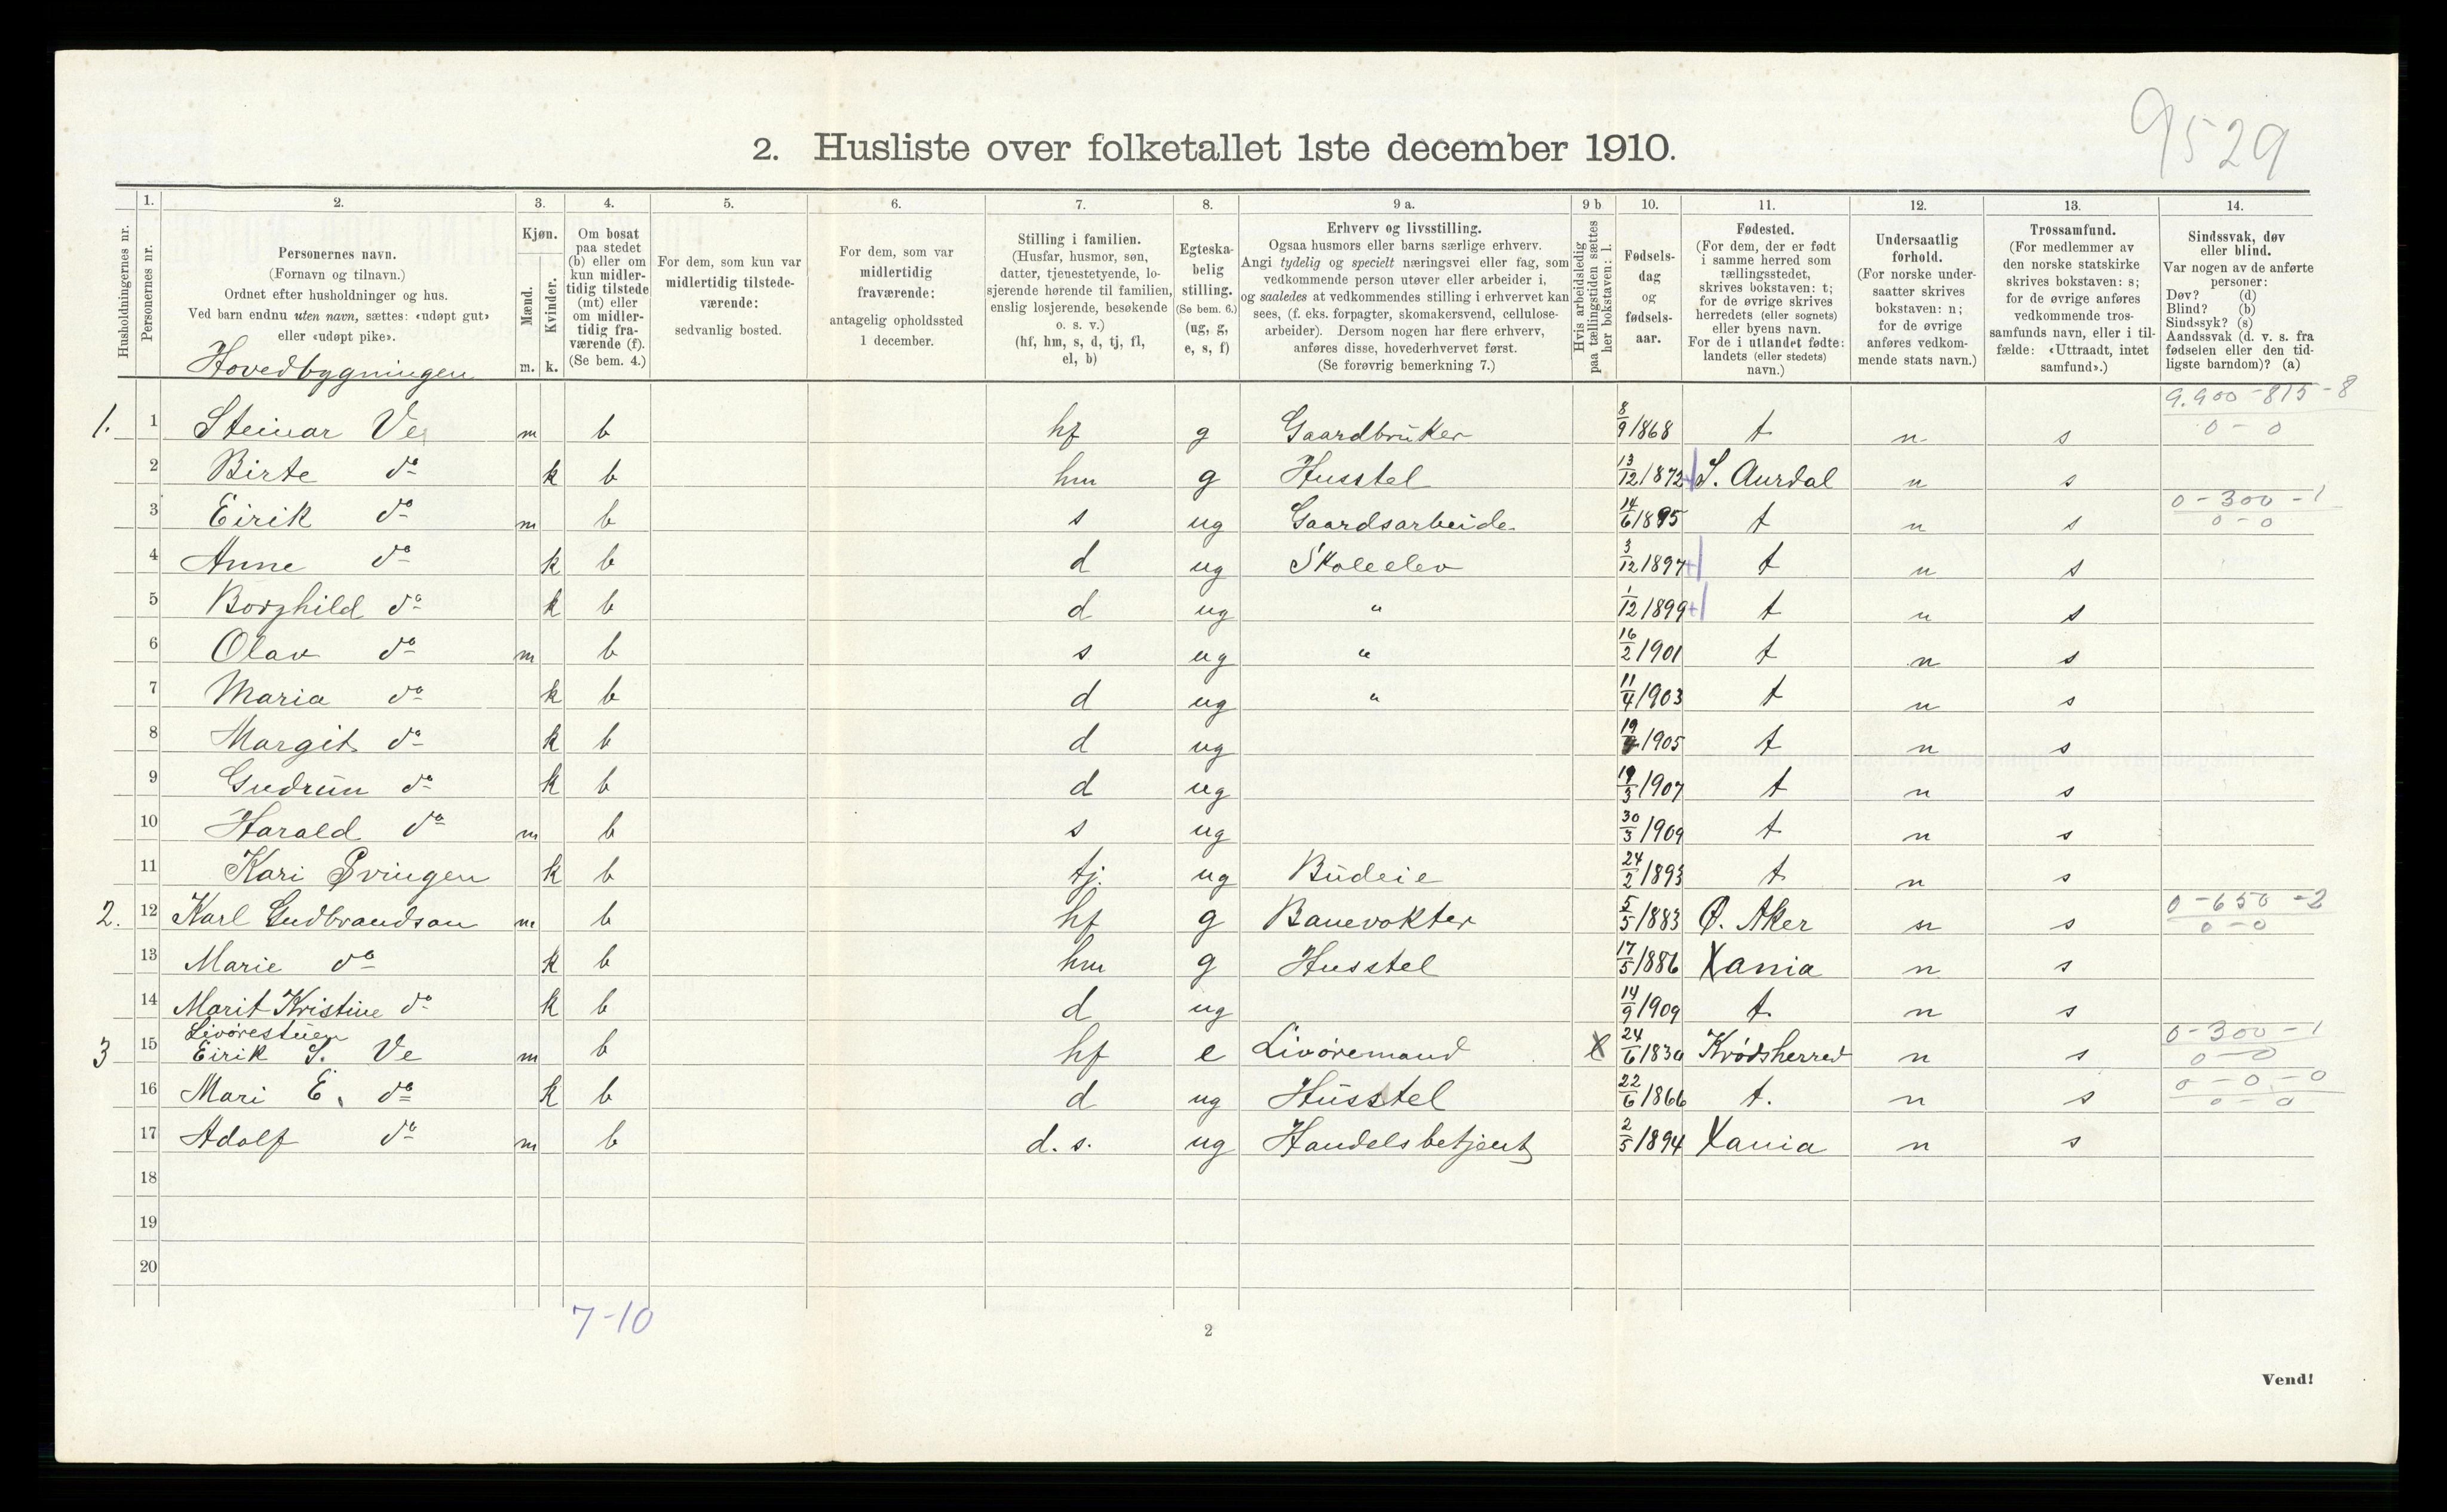 9529
2. Husliste over folketallet 1ste december 1910.
1. 2. 3. 4. 5. 6. 7. 8. 9 a. 9 b 10. 11. 12. 13. 14.
Husholdningernes nr.
Personernes nr.
Personernes navn.
(Fornavn og tilnavn.)
Ordnet efter husholdninger og hus.
Ved barn endnu uten navn, sættes: «udøpt gut»
eller «udøpt pike».
Kjøn.
Mænd.
Kvinder.
m. k.
Om bosat
paa stedet
(b) eller om
kun midler-
tidig tilstede
(mt) eller
om midler-
tidig fra-
værende (f).
(Se bem. 4.)
For dem, som kun var
midlertidig tilstede-
værende:
sedvanlig bosted.
For dem, som var
midlertidig
fraværende:
antagelig opholdssted
1 december.
Stilling i familien.
(Husfar, husmor, søn,
datter, tjenestetyende, lo-
sjerende hørende til familien,
enslig losjerende, besøkende
o. s. v.)
(hf, hm, s, d, tj, fl,
el, b)
Egteska-
belig
stilling.
(Se bem. 6.)
(ug, g,
e, s, f)
Erhverv og livsstilling.
Ogsaa husmors eller barns særlige erhverv.
Angi tydelig og specielt næringsvei eller fag, som
vedkommende person utøver eller arbeider i,
og saaledes at vedkommendes stilling i erhvervet kan
sees, (f. eks. forpagter, skomakersvend, cellulose-
arbeider). Dersom nogen har flere erhverv,
anføres disse, hovederhvervet først.
(Se forøvrig bemerkning 7.)
Hvis arbeidsledig
paa tællingstiden sættes
her bokstaven: l.
Fødsels-
dag
og
fødsels-
aar.
Fødested.
(For dem, der er født
i samme herred som
tællingsstedet,
skrives bokstaven: t;
for de øvrige skrives
herredets (eller sognets)
eller byens navn.
For de i utlandet fødte:
landets (eller stedets)
navn.)
Undersaatlig
forhold.
(For norske under-
saatter skrives
bokstaven: n;
for de øvrige
anføres vedkom-
mende stats navn.)
Trossamfund.
(For medlemmer av
den norske statskirke
skrives bokstaven: s;
for de øvrige anføres
vedkommende tros-
samfunds navn, eller i til-
fælde: «Uttraadt, intet
samfund».)
Sindssvak, døv
eller blind.
Var nogen av de anførte
personer:
Døv? (d)
Blind? (b)
Sindssyk? (s)
Aandssvak (d. v. s. fra
fødselen eller den tid-
ligste barndom)? (a)
Hovedbygningen
9.900-815-8
1. 1 Steinar Ve m b hf g Gaardbruker 8/9 1868 t n s 0-0
2 Birte do k b hm g Husstel 13/12 1872 S. Aurdal n s
3 Eirik do m b s ug Gaardsarbeide 14/6 1895 t n s 0-300-1 0-0
4 Anne do k b d ug Skoleelev 3/12 1897 t n s
5 Borghild do k b d ug " 1/12 1899 t n s
6 Olav do m b s ug " 16/2 1901 t n s
7 Maria do k b d ug " 11/4 1903 t n s
8 Margit do k b d ug 19/ 1905 t n s
9 Gudrun do k b d ug 19/3 1907 t n s
10 Harald do m b s ug 30/3 1909 t n s
11 Kari k b tj. ug Budeie 24/2 1893 t n s
2. 12 Karl Gudbrandsan m b hf g Banevokter 5/5 1883 Ø. Aker n s 0-650-2 0-0
13 Marie do k b hm g Husstel 17/5 1886 Xania n s
14 Marit Kristine do k b d ug 14/9 1909 t. n s
Livørestuen
3 15 Eirik S. Ve m b hf e Livøremand 24/6 1830 Krødsherred n s 0-300-1 0-0
16 Mari E. do k b d ug Husstel 22/6 1866 t. n s 0-0-0 0-0
17 Adolf do m b d. s. ug Handelsbetjent 2/5 1894 Xania n s
18
19
20
7-10
2
Vend!